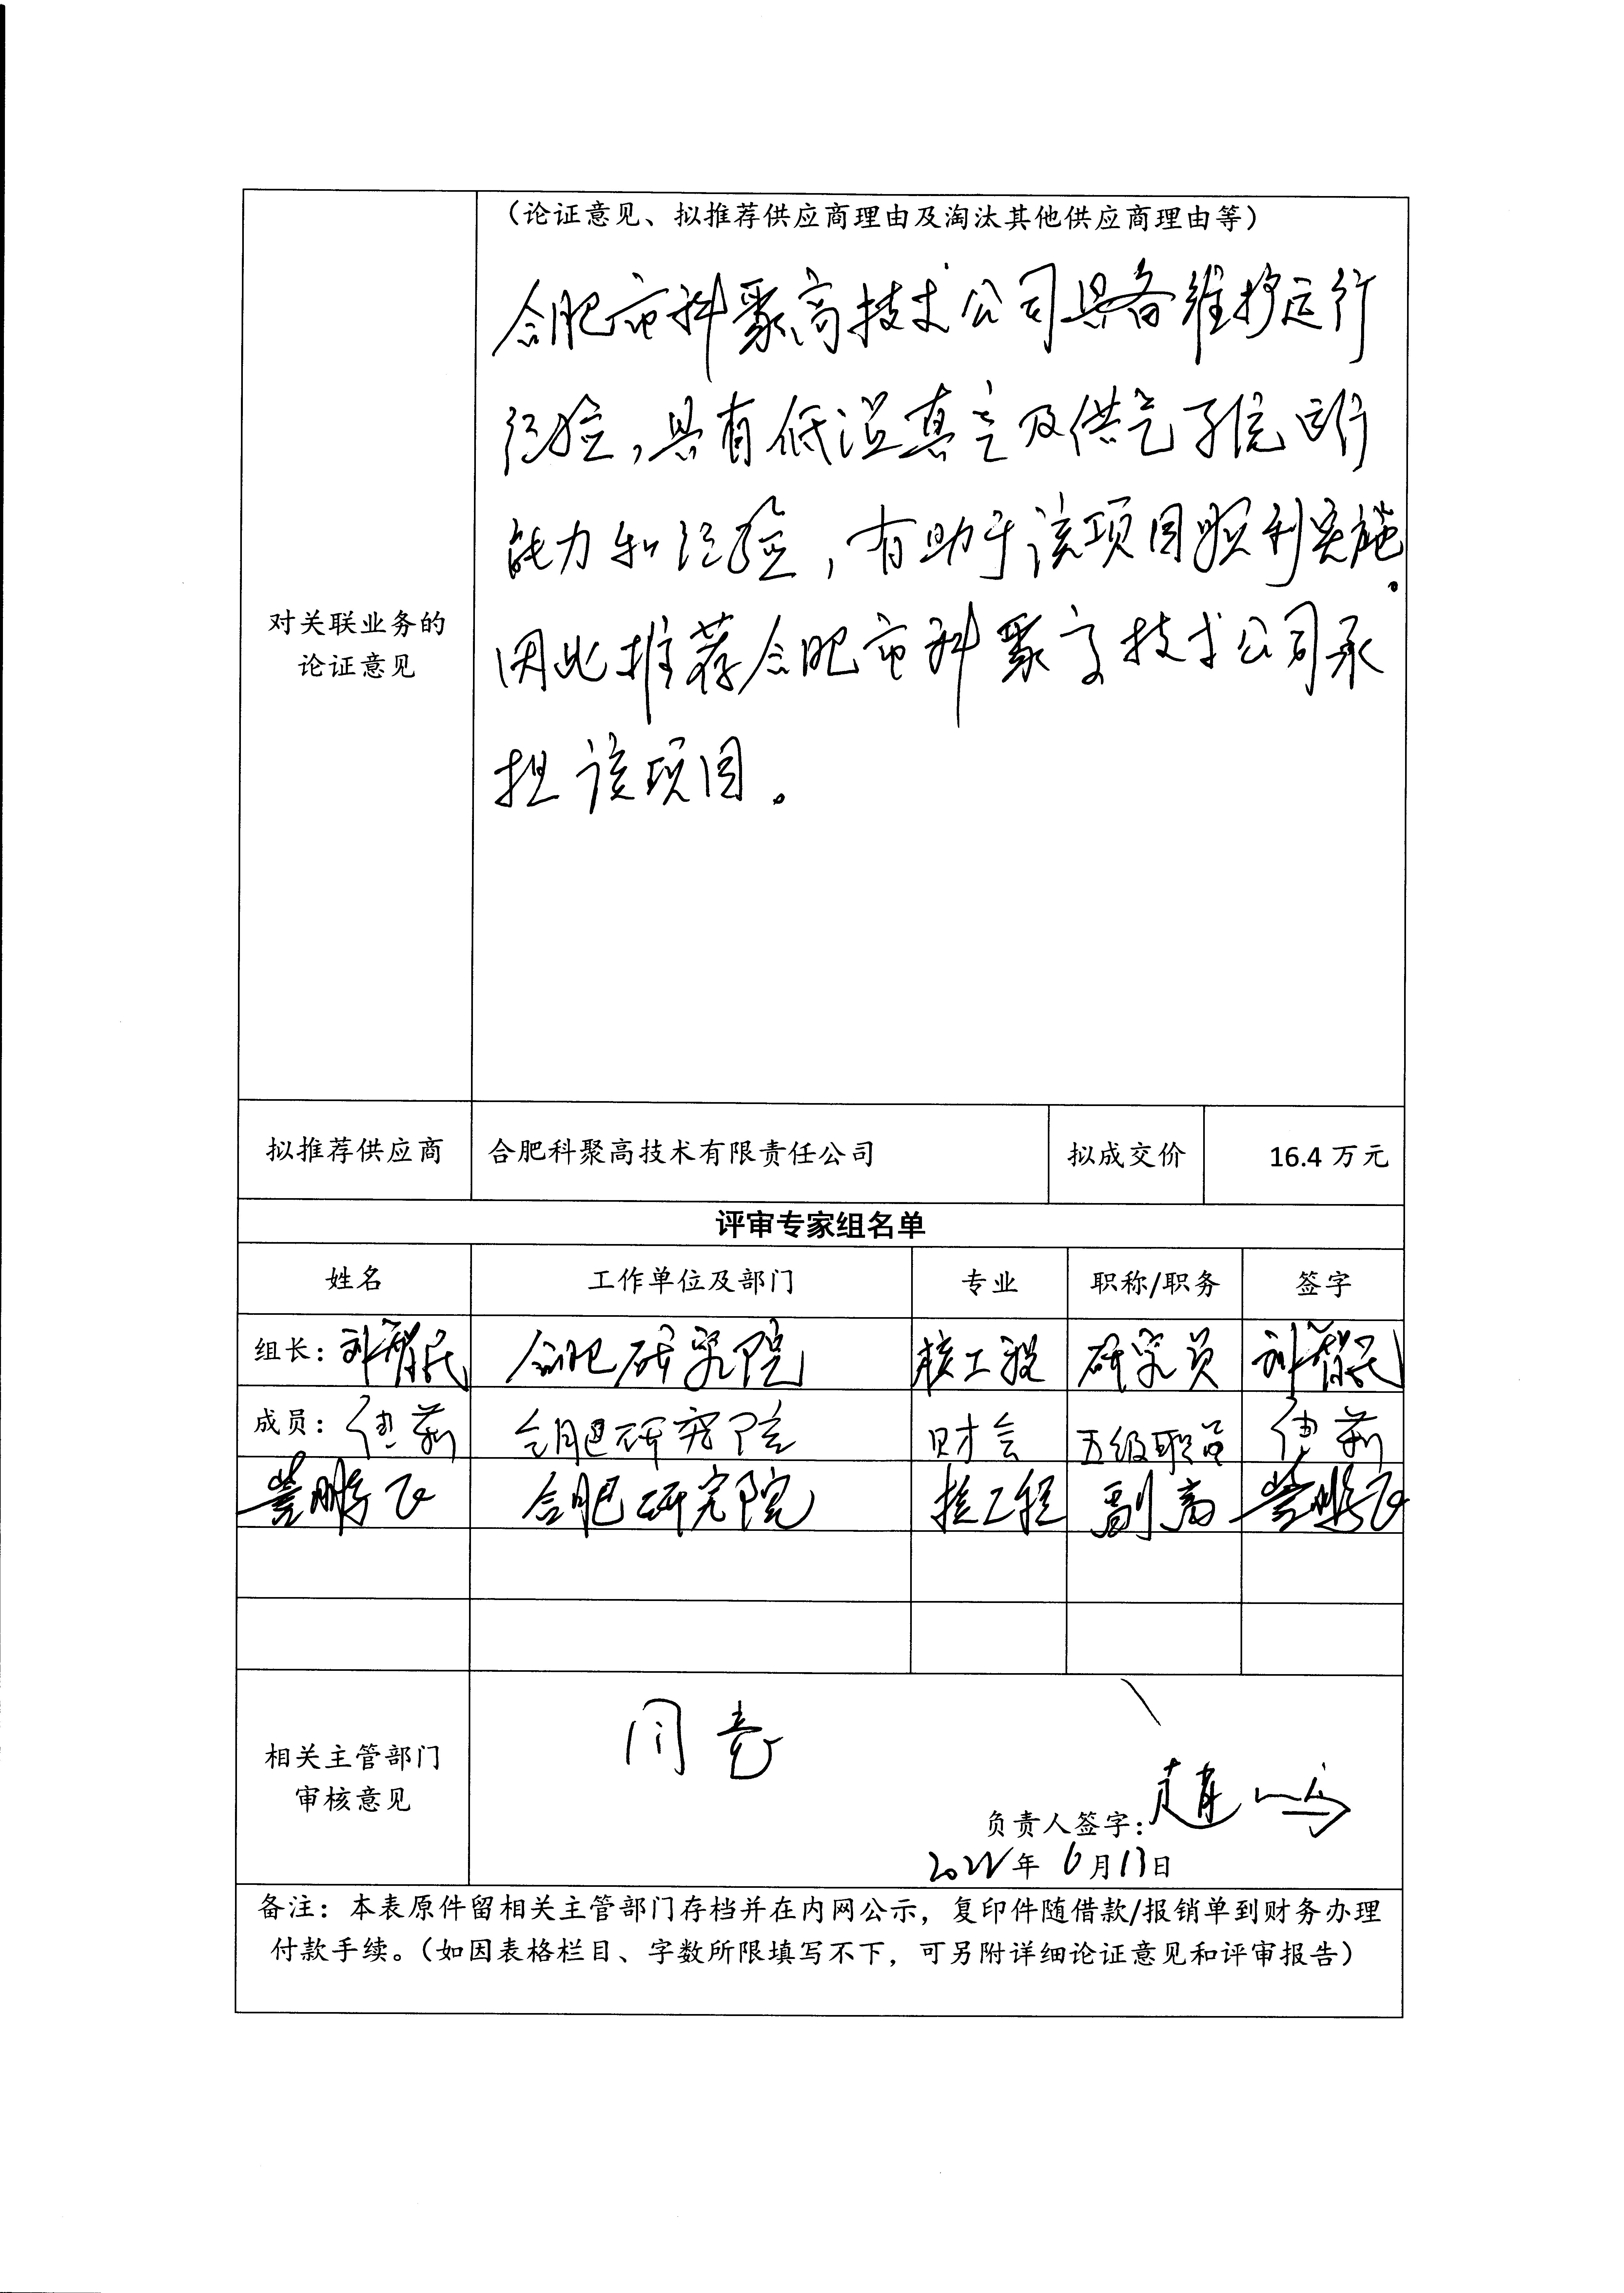 （论证意见、拟推荐供应商理由及淘汰其他供应商理由等）
合肥市科聚高技术公司具备维护运行
经验，具有低温真空及供气系统运行
能力和经验，有助于该项目顺利实施。
因此推荐合肥市科聚高技术公司承
担该项目。
对关联业务的
论证意见
拟推荐供应商 合肥科聚高技术有限责任公司 拟成交价 16.4 万元
评审专家组名单
姓名 工作单位及部门 专业 职称/职务 签字
组长： 合肥研究院 核工程 研究员
成员： 合肥研究院 财会 五级职员
合肥研究院 核工程 副高
相关主管部门
审核意见
同意
负责人签字：
2022年 6月13日
备注：本表原件留相关主管部门存档并在内网公示，复印件随借款/报销单到财务办理
付款手续。（如因表格栏目、字数所限填写不下，可另附详细论证意见和评审报告）